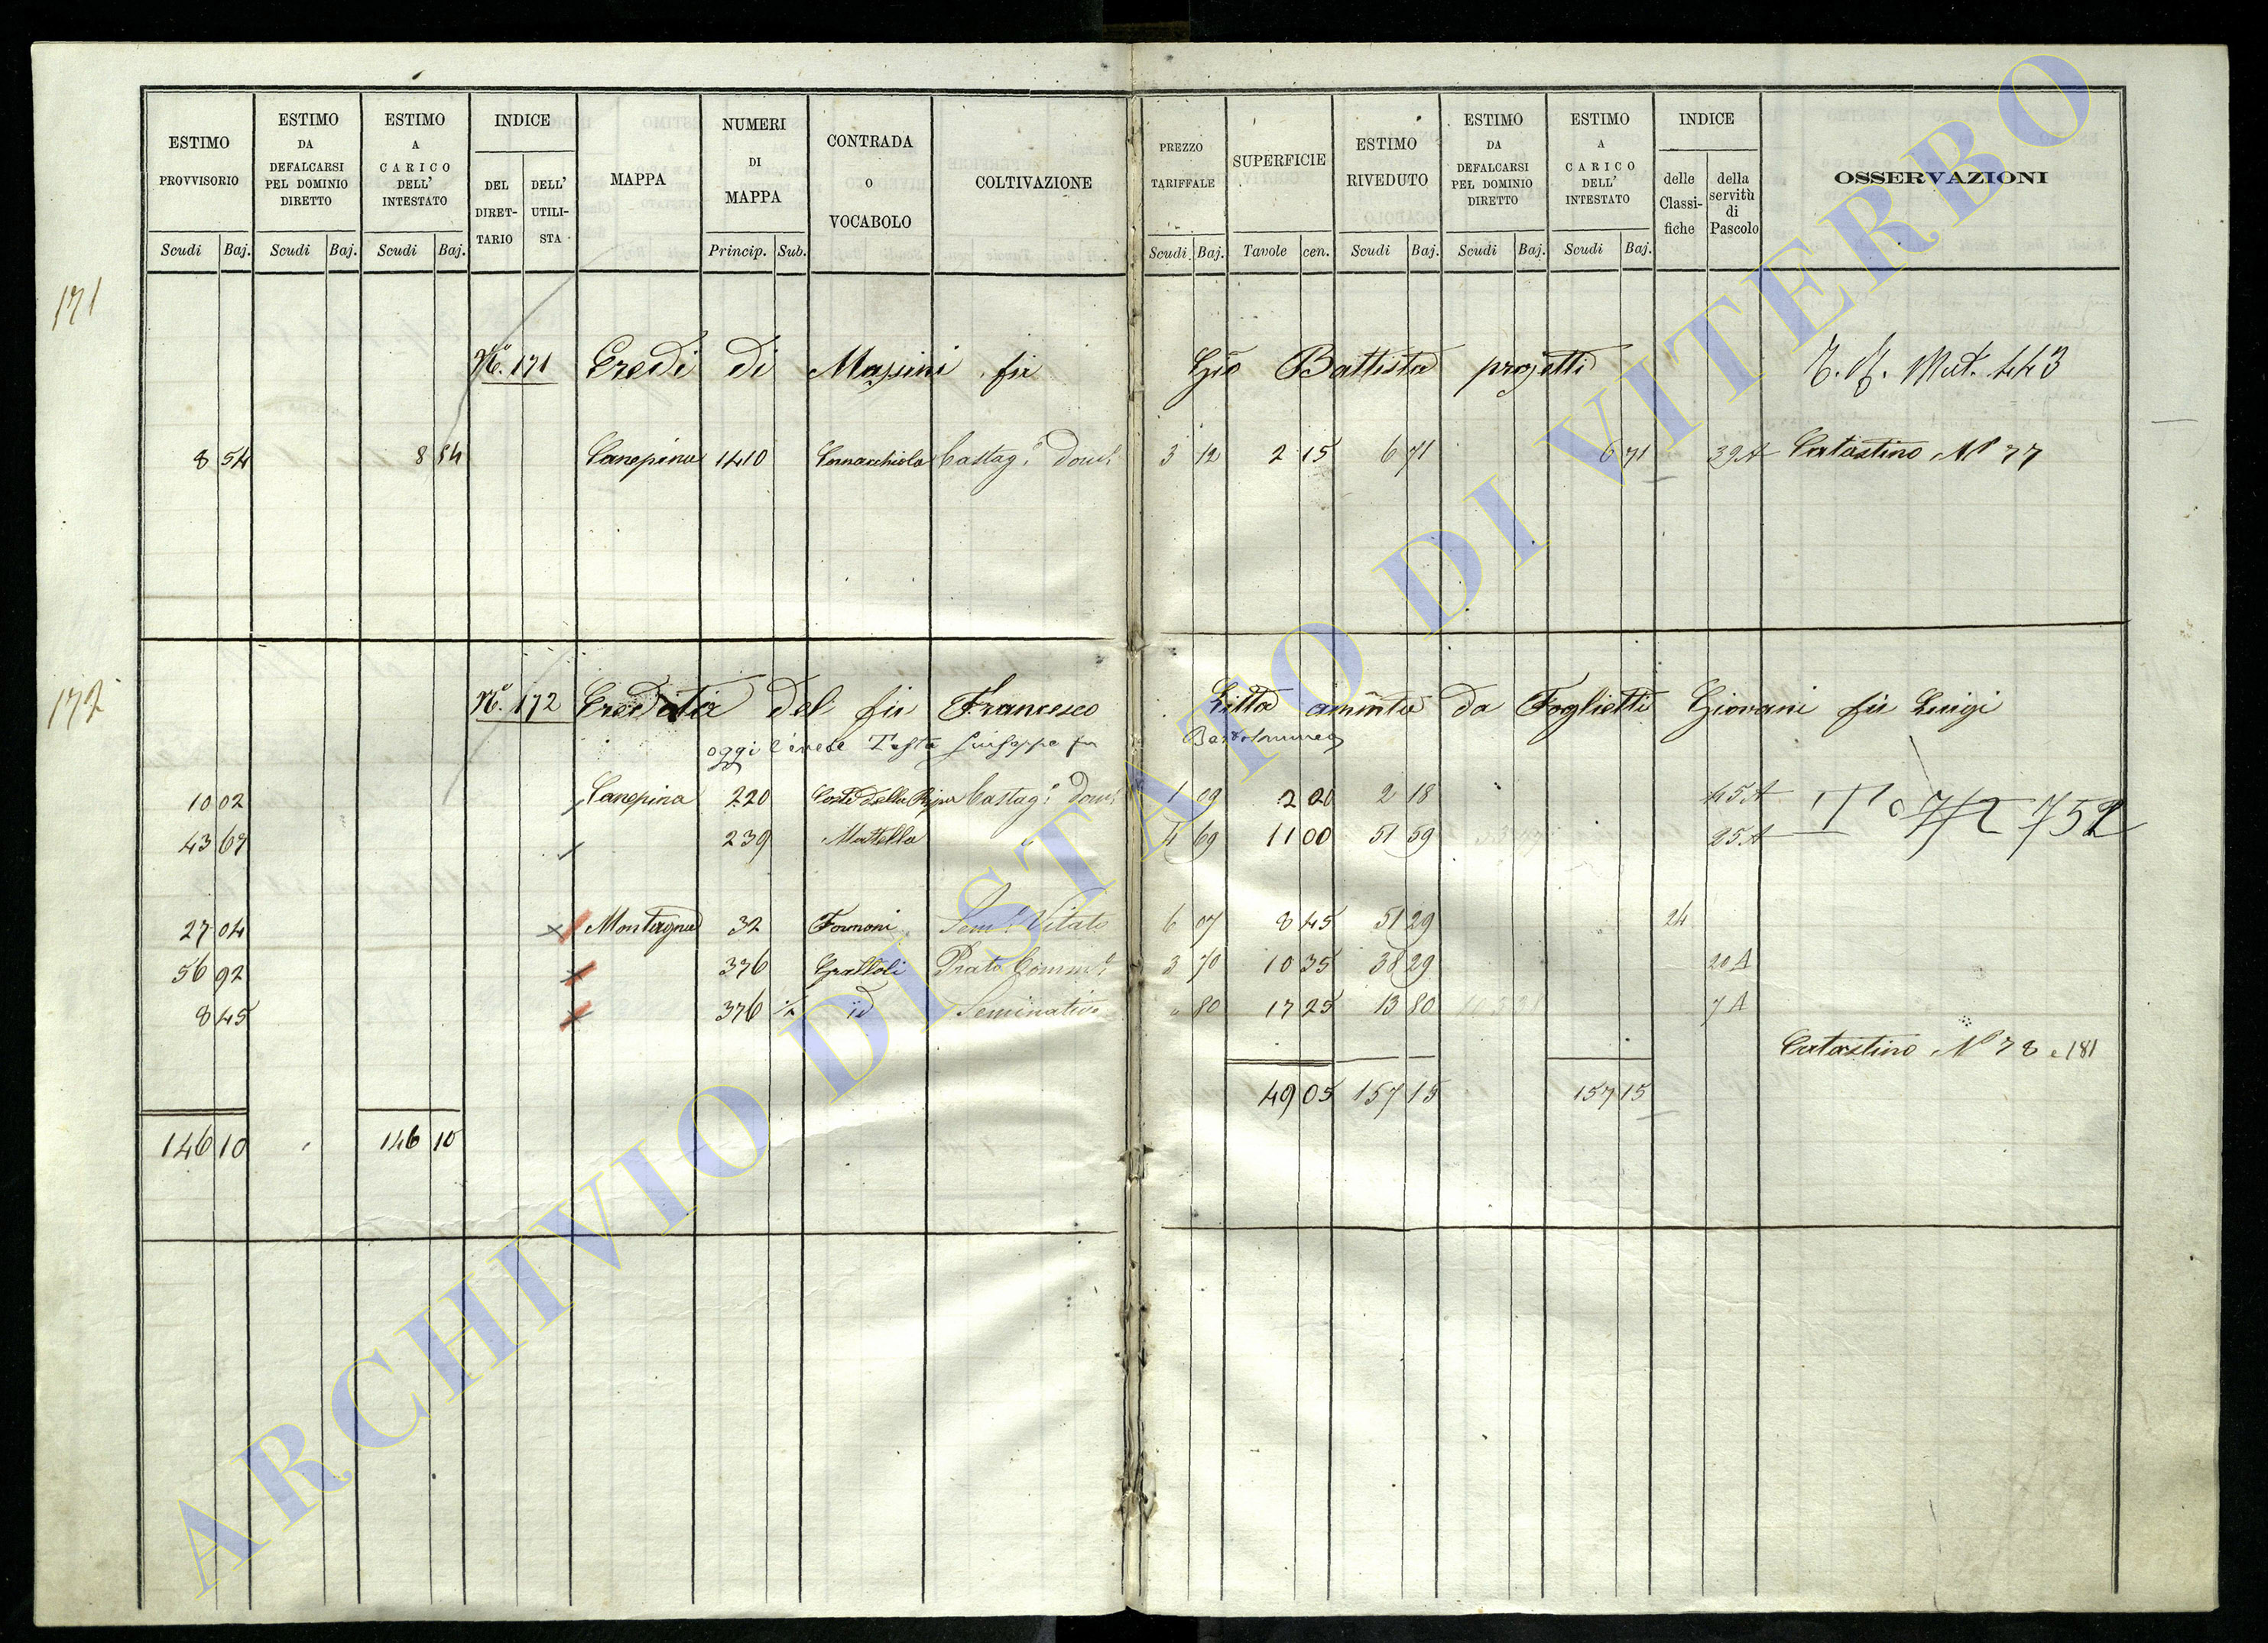 ESTIMO PROVVISORIO Scudi Baj.
ESTIMO DA DEFALCARSI PEL DOMINIO DIRETTO Scudi Baj.
ESTIMO A CARICO DELL' INTESTATO Scudi Baj.
INDICE DEL DIRET-TARIO DELL' UTILI-STA
MAPPA
NUMERI DI MAPPA Princip. Sub.
CONTRADA O VOCABOLO
COLTIVAZIONE
PREZZO TARIFFALE Scudi Baj.
SUPERFICIE Tavole cen.
ESTIMO RIVEDUTO Scudi Baj.
ESTIMO DA DEFALCARSI PEL DOMINIO DIRETTO Scudi Baj.
ESTIMO A CARICO DELL' INTESTATO Scudi Baj.
INDICE delle Classi-fiche della servitù di Pascolo
OSSERVAZIONI
171
N.o 171 Eredi di Massini fu Gio Battista progetti Mut. 443
8 54 8 54 Canepina 1410 Cornacchiola Castag.o Dom. 3 12 2 15 6 71 6 71 39A Catastino No 77
172
No. 172 Eredità del fu Francesco Litta ammta da Foglietti Giovani fu Luigi
oggi Testa Giuseppe fu Bartolommeo
10 02 Canepina 220 Coste della Ripa Castag.o Dom. 1 09 2 00 2 18 45A
43 67 239 Mattella 4 69 11 00 51 59 25A 752
27 04 Montagna 32 Fornoni Sem.o Vitato 6 07 8 45 51 29 24
56 92 376 Grottoli Prato 3 70 10 35 38 29 20A
8 45 376 1/2 id Seminativo " 80 17 25 13 80 7A
Catastino No 78 e 181
49 05 157 15 157 15
146 10 146 10
ARCHIVIO DI STATO DI VITERBO